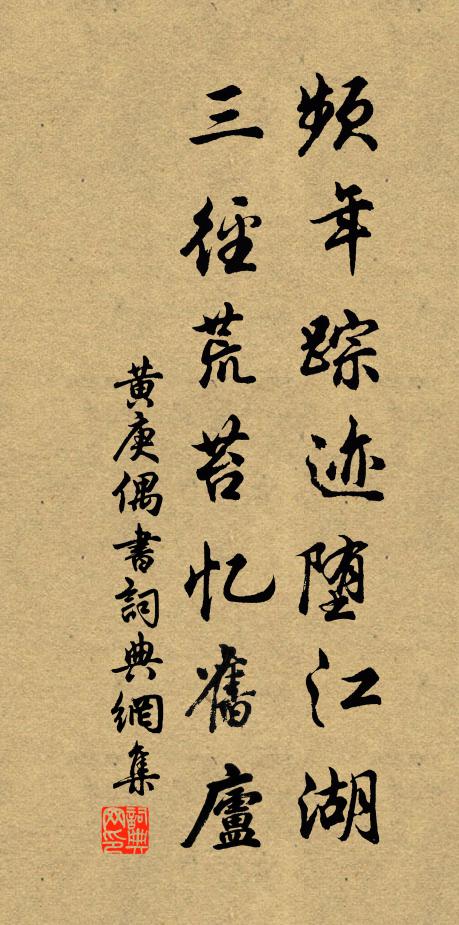 频年踪迹堕江湖
三径荒苔忆旧庐
黄庚偶书词典網集
詞典網印